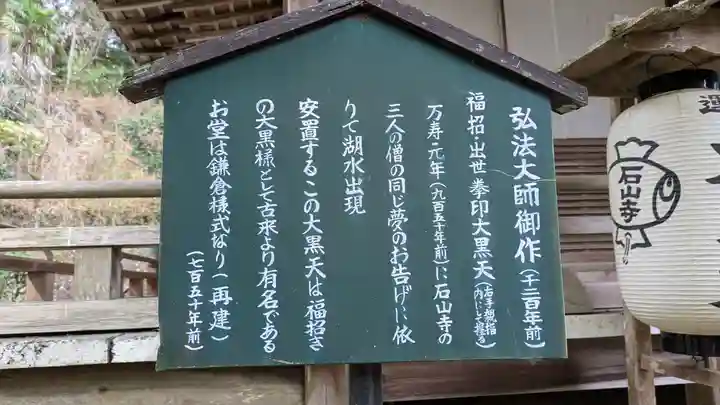 弘法大師御作（千二百年前）
福招・出世 拳印大黒天（右手親指内にして握る）
万寿・元年（九百五十年前）に石山寺の
三人の僧の同じ夢のお告げに依
りて湖水出現
安置するこの大黒天は福招き
の大黒様として古来より有名である
お堂は鎌倉様式なり（再建）
（七百五十年前）
石山寺